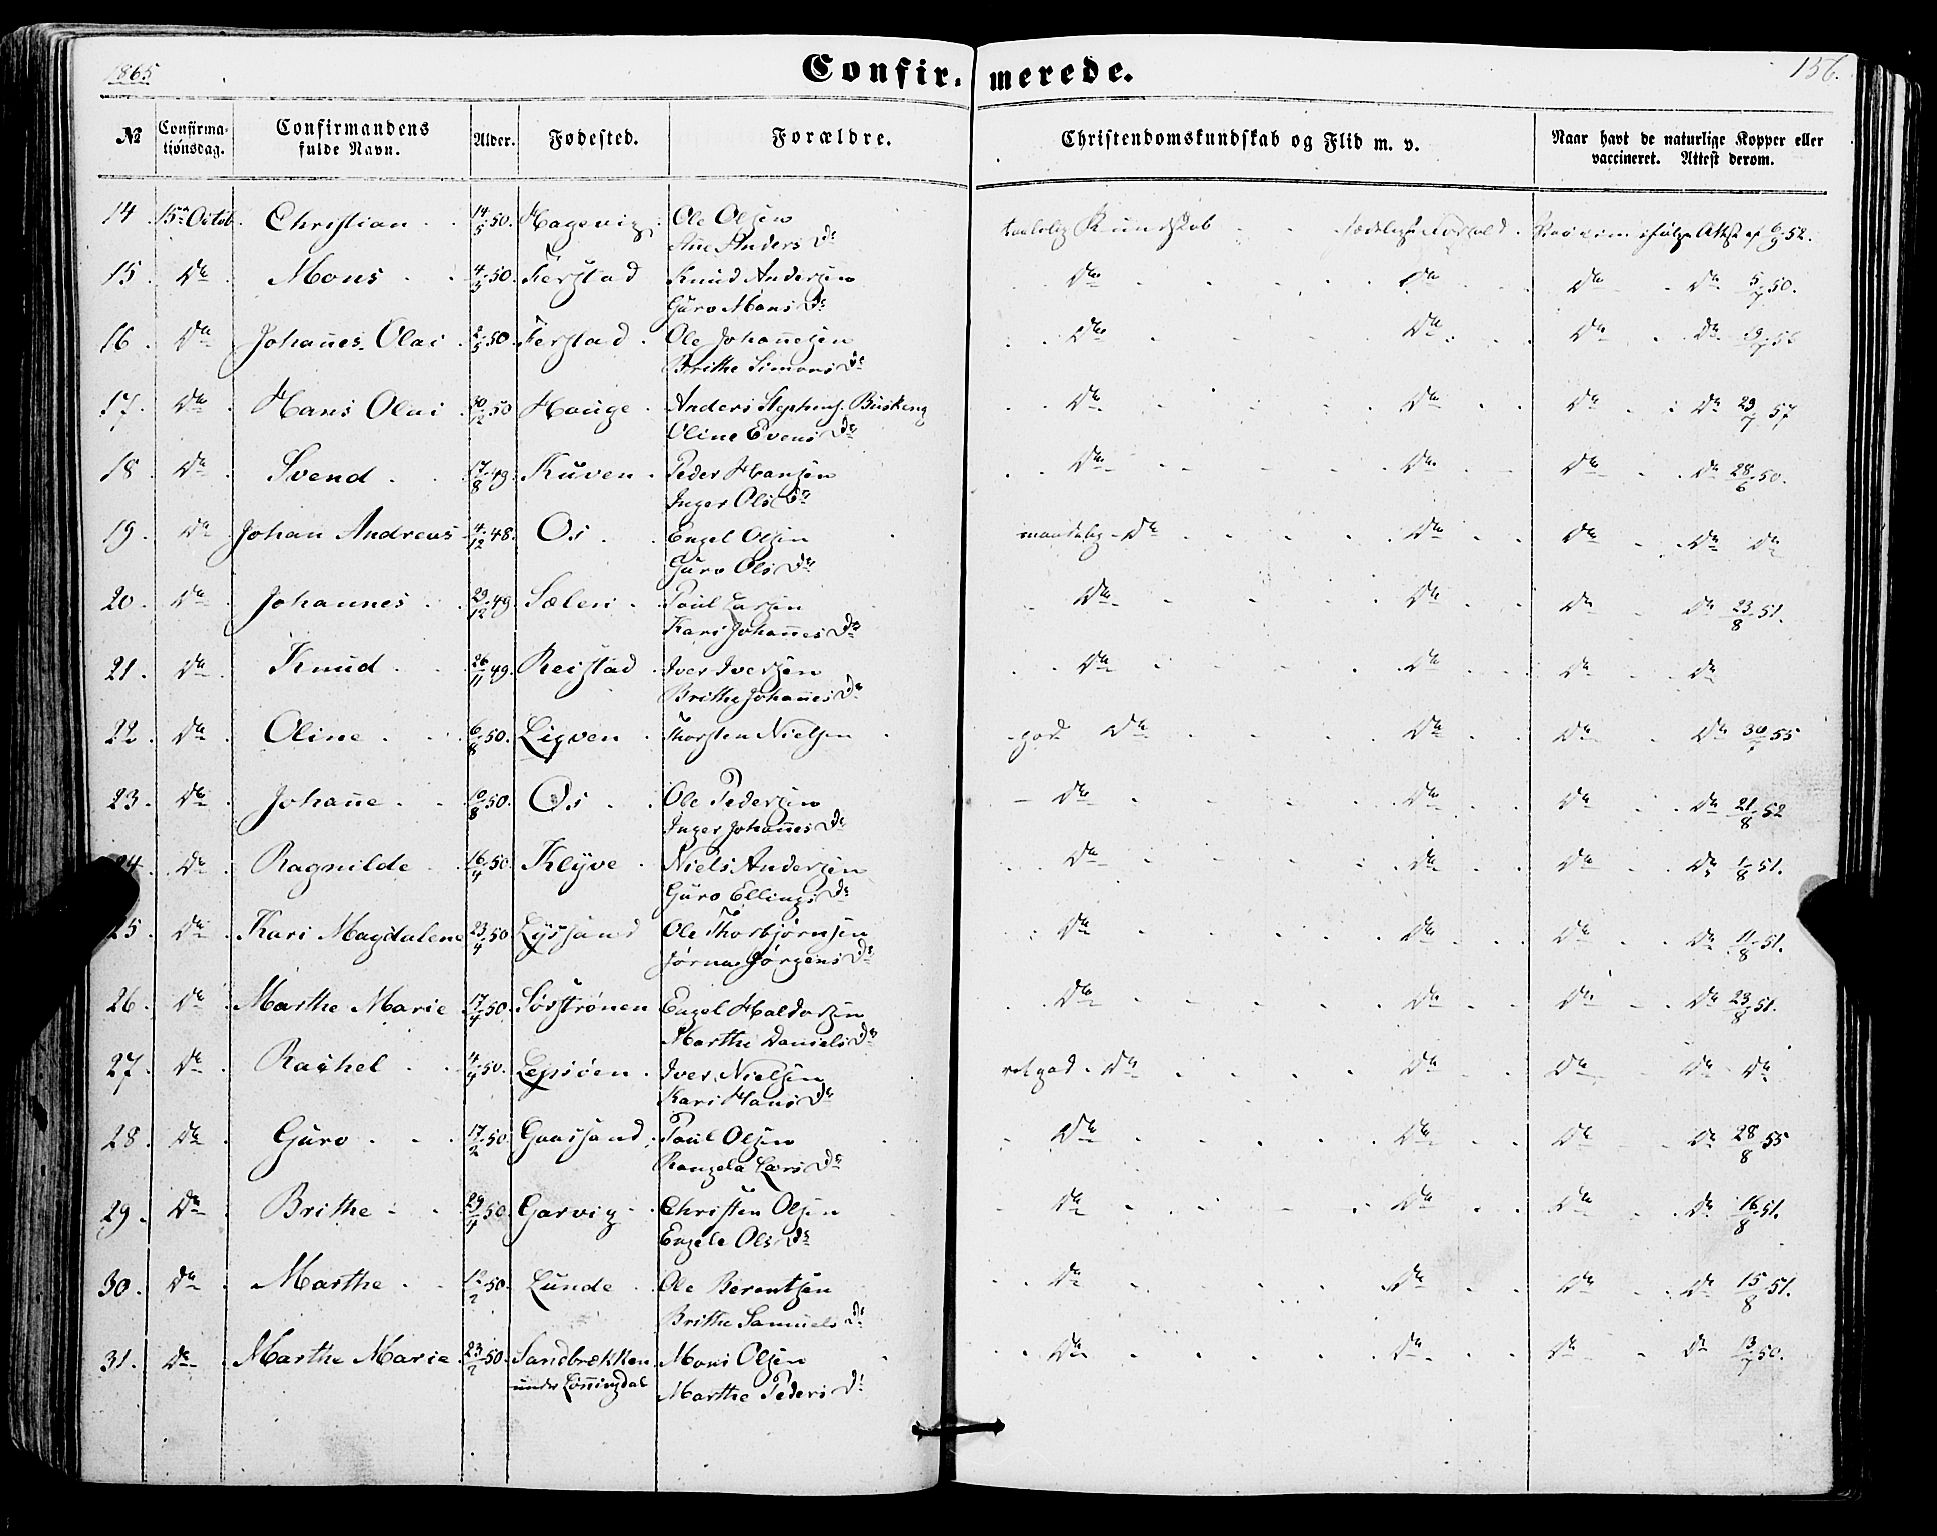 1865
Confir- merede.
156.
№ Confirma- Confirmandens Alder. Fødested. Forældre. Christendomskundskab og Flid m. v. Naar havt de naturlige Kopper eller
tionsdag. fulde Navn. vaccineret. Attest derom.
14. 15de Octob. Christian 14/5 50. Hagevig. Ole Olsen taalelig Kundskab sædeligt Forhold. ifølge Attst af 6/9 52.
Ane Anders Dr
15. Do Mons 4/5 50. Ferstad Knud Andersen Do Do Do Do 5/7 50.
Guro Mons Dr
16. Do Johannes Olai 2/5 50. Ferstad Ole Johannesen Do Do Do Do 56
Brithe Simons Dr
17. Do Hans Olai 30/12 50 Hauge Anders Stephens. Buskeng Do Do Do Do 23/7 57
Oline Evens Dr
18. Do Svend 17/8 49. Kuven Peder Hansen Do Do Do Do 28/6 50.
Inger Ols Dr
19. Do Johan Andreas 4/12 48. Os Engel Olsen maadelig Do Do Do Do Do
Guro Ols Dr
20. Do Johannes 29/12 49 Sælen Poul Larsen Do Do Do Do 23/8 51.
Kari Johannes Dr
21. Do Knud 26/11 49. Reistad Iver Iversen Do Do Do Do
Brithe Johannes Dr
22. Do Oline 6/8 50. Ligven Thorsten Nielsen god Do Do Do Do 30/7 55
23. Do Johanne 10/8 50. Os Ole Pedersen Do Do Do Do 21/8 52
Inger Johannes Dr
24. Do Ragnilde 16/4 50. Klyve Niels Andersen Do Do Do Do 1/8 51.
Guro Ellings Dr
25. Do Kari Magdalene 23/4 50 Lyssand Ole Thorbjørnsen Do Do Do Do 11/8 51.
Jørna Jørgens Dr
26. Do Marthe Marie 17/4 50. Sørstrønen Engel Haldorsen Do Do Do Do 23/8 51.
Marthe Daniels Dr
27. Do Rachel 4/4 50. Lepsøen Iver Nielsen ret god Do Do Do Do Do
Kari Hans Dr
28. Do Guro 17/2 50. Gaassand Poul Olsen Do Do Do Do 28/8 55
Rangela Lars Dr
29. Do Brithe 29/4 50. Garvig Christen Olsen Do Do Do Do 16/8 51.
Engele Ols Dr
30. Do Marthe 12/2 50. Lunde Ole Berentsen Do Do Do Do 15/8 51.
Brithe Samuels Dr
31. Do Marthe Marie 23/2 50. Sandbrækken Mons Olsen Do Do Do Do 13/7 50.
under Lønningdal Marthe Peders Dr